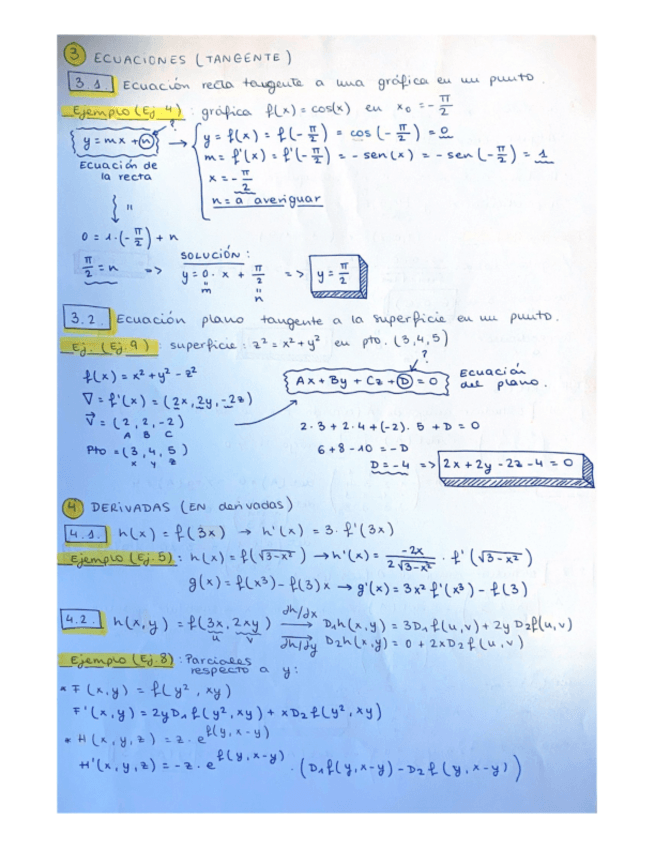 ③ ECUACIONES (TANGENTE)
3.1. Ecuación recta tangente a una gráfica en un punto.
Ejemplo (Ej 4): gráfica f(x) = cos(x) en x₀ = -π/2
?
y = mx + n → y = f(x) = f(-π/2) = cos(-π/2) = 0
Ecuación de la recta
m = f'(x) = f'(-π/2) = -sen(x) = -sen(-π/2) = 1
x = -π/2
n = a averiguar
0 = 1·(-π/2) + n
π/2 = n => SOLUCIÓN: y = 0·x + π/2 => y = π/2
m n
3.2. Ecuación plano tangente a la superficie en un punto.
Ej. (Ej. 9): superficie: z² = x² + y² en pto. (3,4,5)
?
f(x) = x² + y² - z²
Ax + By + Cz + D = 0 Ecuación del plano.
∇ = f'(x) = (2x, 2y, -2z)
V⃗ = (2, 2, -2)
A B C
2·3 + 2·4 + (-2)·5 + D = 0
Pto = (3, 4, 5)
x y z
6 + 8 - 10 = -D
D = -4 => 2x + 2y - 2z - 4 = 0
④ DERIVADAS (EN derivadas)
4.1. h(x) = f(3x) → h'(x) = 3·f'(3x)
Ejemplo (Ej. 5): h(x) = f(√3-x²) → h'(x) = -2x/2√3-x² · f'(√3-x²)
g(x) = f(x³) - f(3)x → g'(x) = 3x² f'(x³) - f(3)
4.2. h(x,y) = f(3x, 2xy) dh/dx → D₁h(x,y) = 3D₁f(u,v) + 2y D₂f(u,v)
u v dh/dy → D₂h(x,y) = 0 + 2xD₂f(u,v)
Ejemplo (Ej. 8): Parciales respecto a y:
* F(x,y) = f(y², xy)
F'(x,y) = 2yD₁f(y², xy) + xD₂f(y², xy)
* H(x,y,z) = z·e^f(y, x-y)
H'(x,y,z) = -z·e^f(y, x-y) · (D₁f(y, x-y) - D₂f(y, x-y))